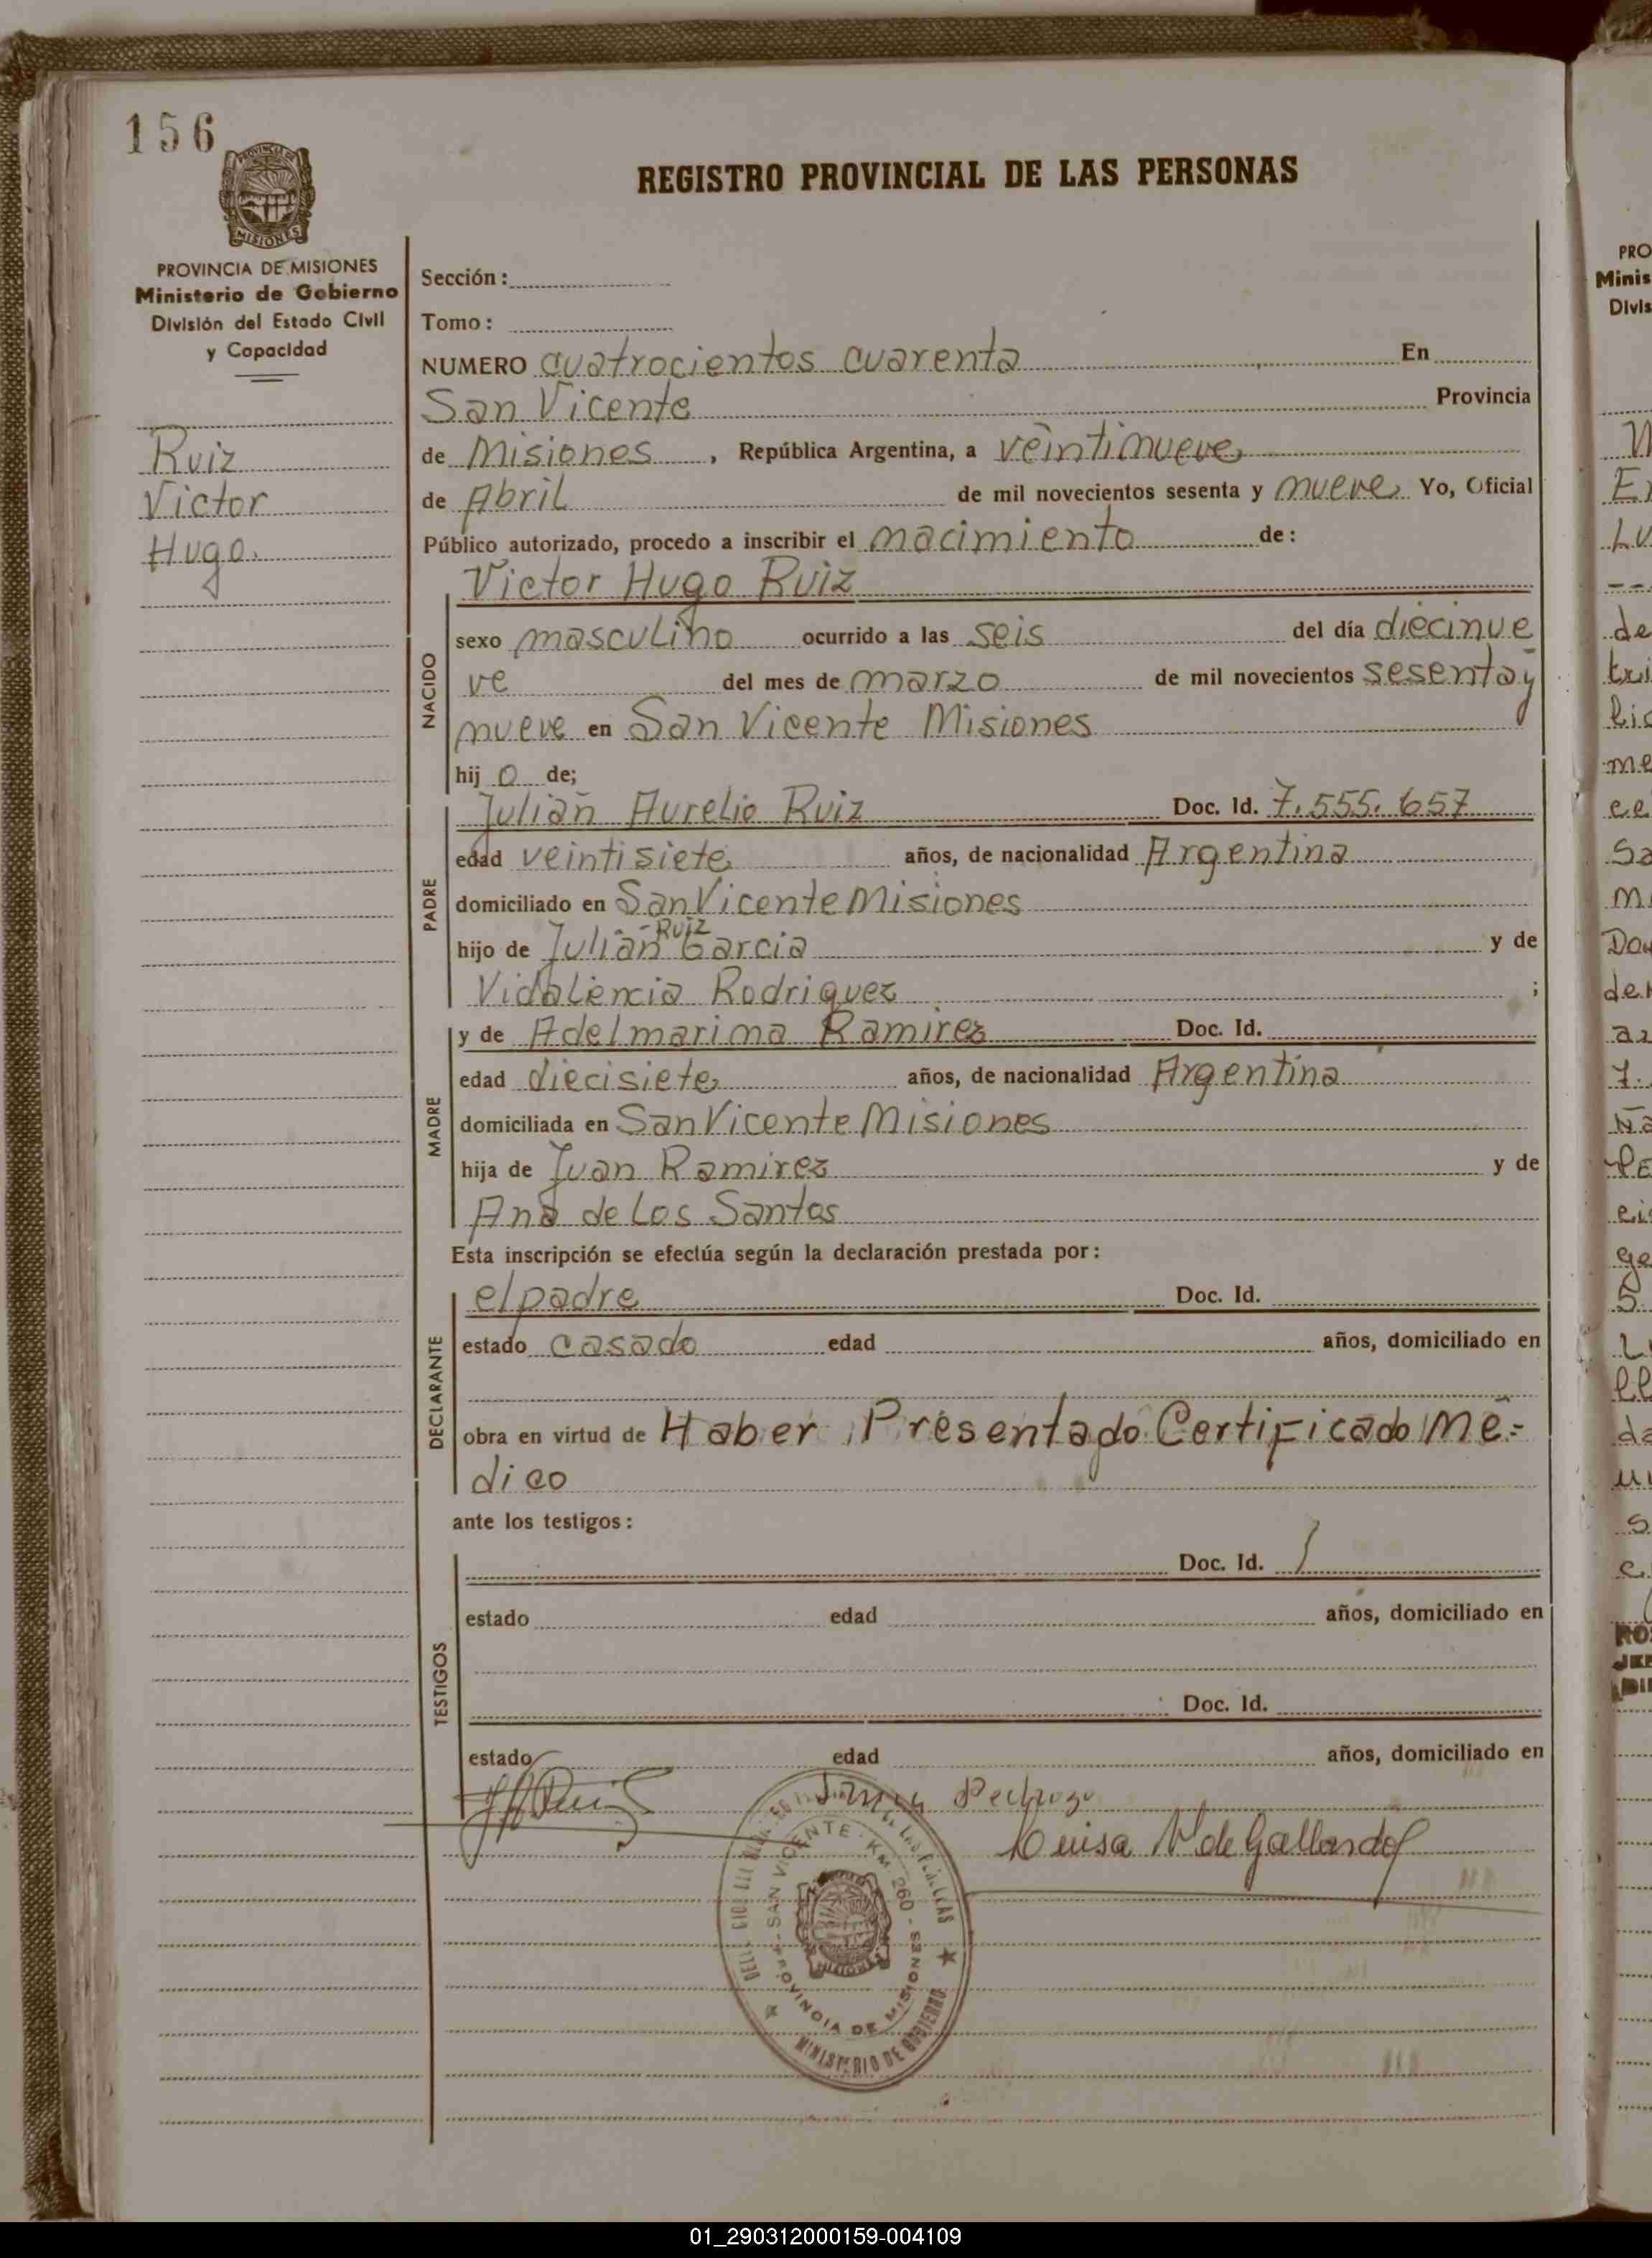 156
PROVINCIA DE MISIONES
MISIONES
PROVINCIA DE MISIONES
Ministerio de Gobierno
División del Estado Civil
y Capacidad
Ruiz
Victor
Hugo.
REGISTRO PROVINCIAL DE LAS PERSONAS
Sección:
Tomo:
NUMERO cuatrocientos cuarenta En
San Vicente Provincia
de Misiones, República Argentina, a veintinueve
de Abril de mil novecientos sesenta y nueve Yo, Oficial
Público autorizado, procedo a inscribir el nacimiento de:
Victor Hugo Ruiz
NACIDO
sexo masculino ocurrido a las seis del día diecinue
ve del mes de marzo de mil novecientos sesenta y
nueve en San Vicente Misiones
hij o de;
PADRE
Julian Aurelio Ruiz Doc. Id. 7.555.657
edad veintisiete años, de nacionalidad Argentina
domiciliado en San Vicente Misiones
-Ruiz
hijo de Julian Garcia y de
Vidalencia Rodriguez ;
MADRE
y de Adelmarina Ramirez Doc. Id.
edad diecisiete años, de nacionalidad Argentina
domiciliada en San Vicente Misiones
hija de Juan Ramirez y de
Ana de Los Santos
Esta inscripción se efectúa según la declaración prestada por:
DECLARANTE
el padre Doc. Id.
estado casado edad años, domiciliado en
obra en virtud de Haber Presentado Certificado Me=
dico
ante los testigos:
TESTIGOS
Doc. Id.
estado edad años, domiciliado en
Doc. Id.
estado edad años, domiciliado en
Pedrozo
Luisa N de Gallardo
SAN VICENTE - KM 260 -
PROVINCIA DE MISIONES
MINISTERIO DE GOBIERNO
PRO
Minis
Divis
01_290312000159-004109